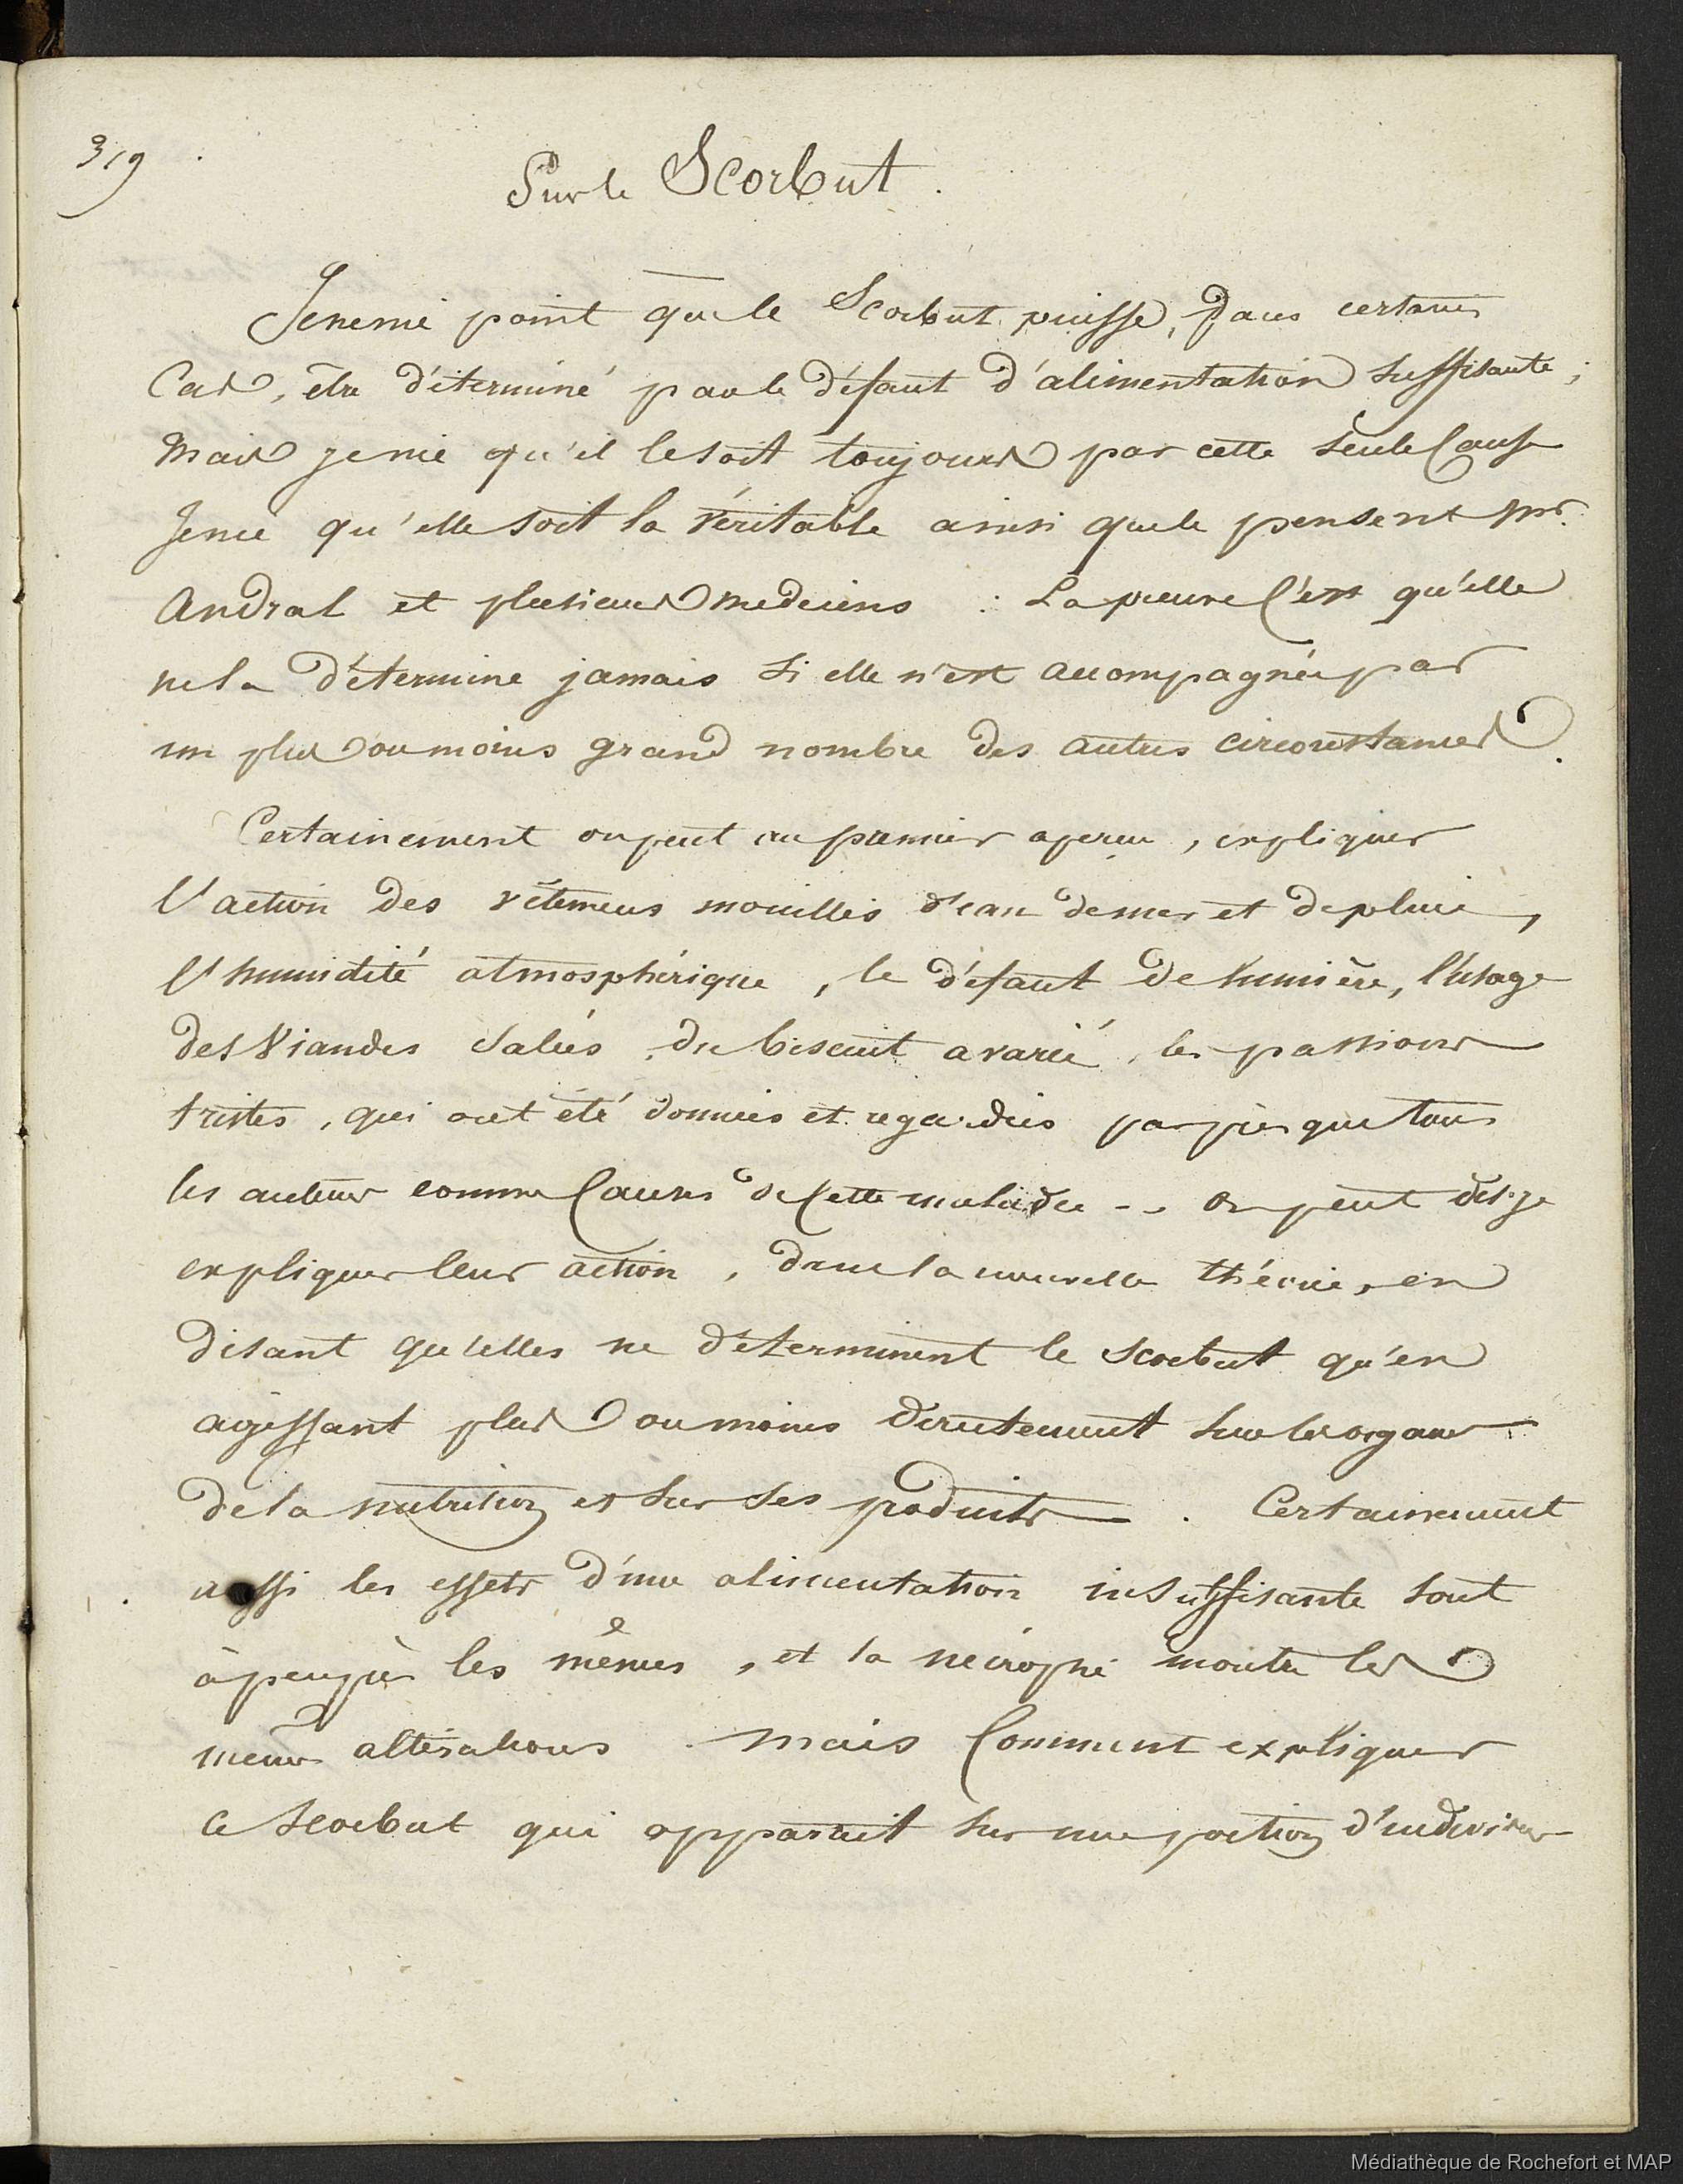 319
Sur le Scorbut.
Je ne nie point que le Scorbut puisse, dans certains
Cas, être déterminé par le défaut d'alimentation suffisante;
Mais je nie qu'il le soit toujours par cette seule Cause
Je nie qu'elle soit la véritable ainsi que le pensent Mr.
Andral et plusieurs medecins : La preuve C'est qu'elle
ne la détermine jamais si elle n'est accompagnée par
un plus ou moins grand nombre des autres circonstances.
Certainement on peut au premier aperçu, expliquer
l'action des vêtemens mouillés d'eau de mer et de pluie,
l'humidité atmosphérique, le défaut de lumière, l'usage
des Viandes Salées, du biscuit avarié, les passions
tristes, qui ont été données et regardées par presque tous
les auteurs comme Causes de Cette maladie -- On peut dis-je
expliquer leur action, dans la nouvelle théorie, en
disant qu'elles ne déterminent le scorbut qu'en
agissant plus ou moins directement sur les organes
de la nutrition et sur ses produits. Certainement
aussi les effets d'une alimentation insuffisante sont
à peu près les mêmes, et la nécropsie montre les
mêmes altérations. Mais Comment expliquer
ce Scorbut qui apparait sur une portion d'individus
Médiathèque de Rochefort et MAP